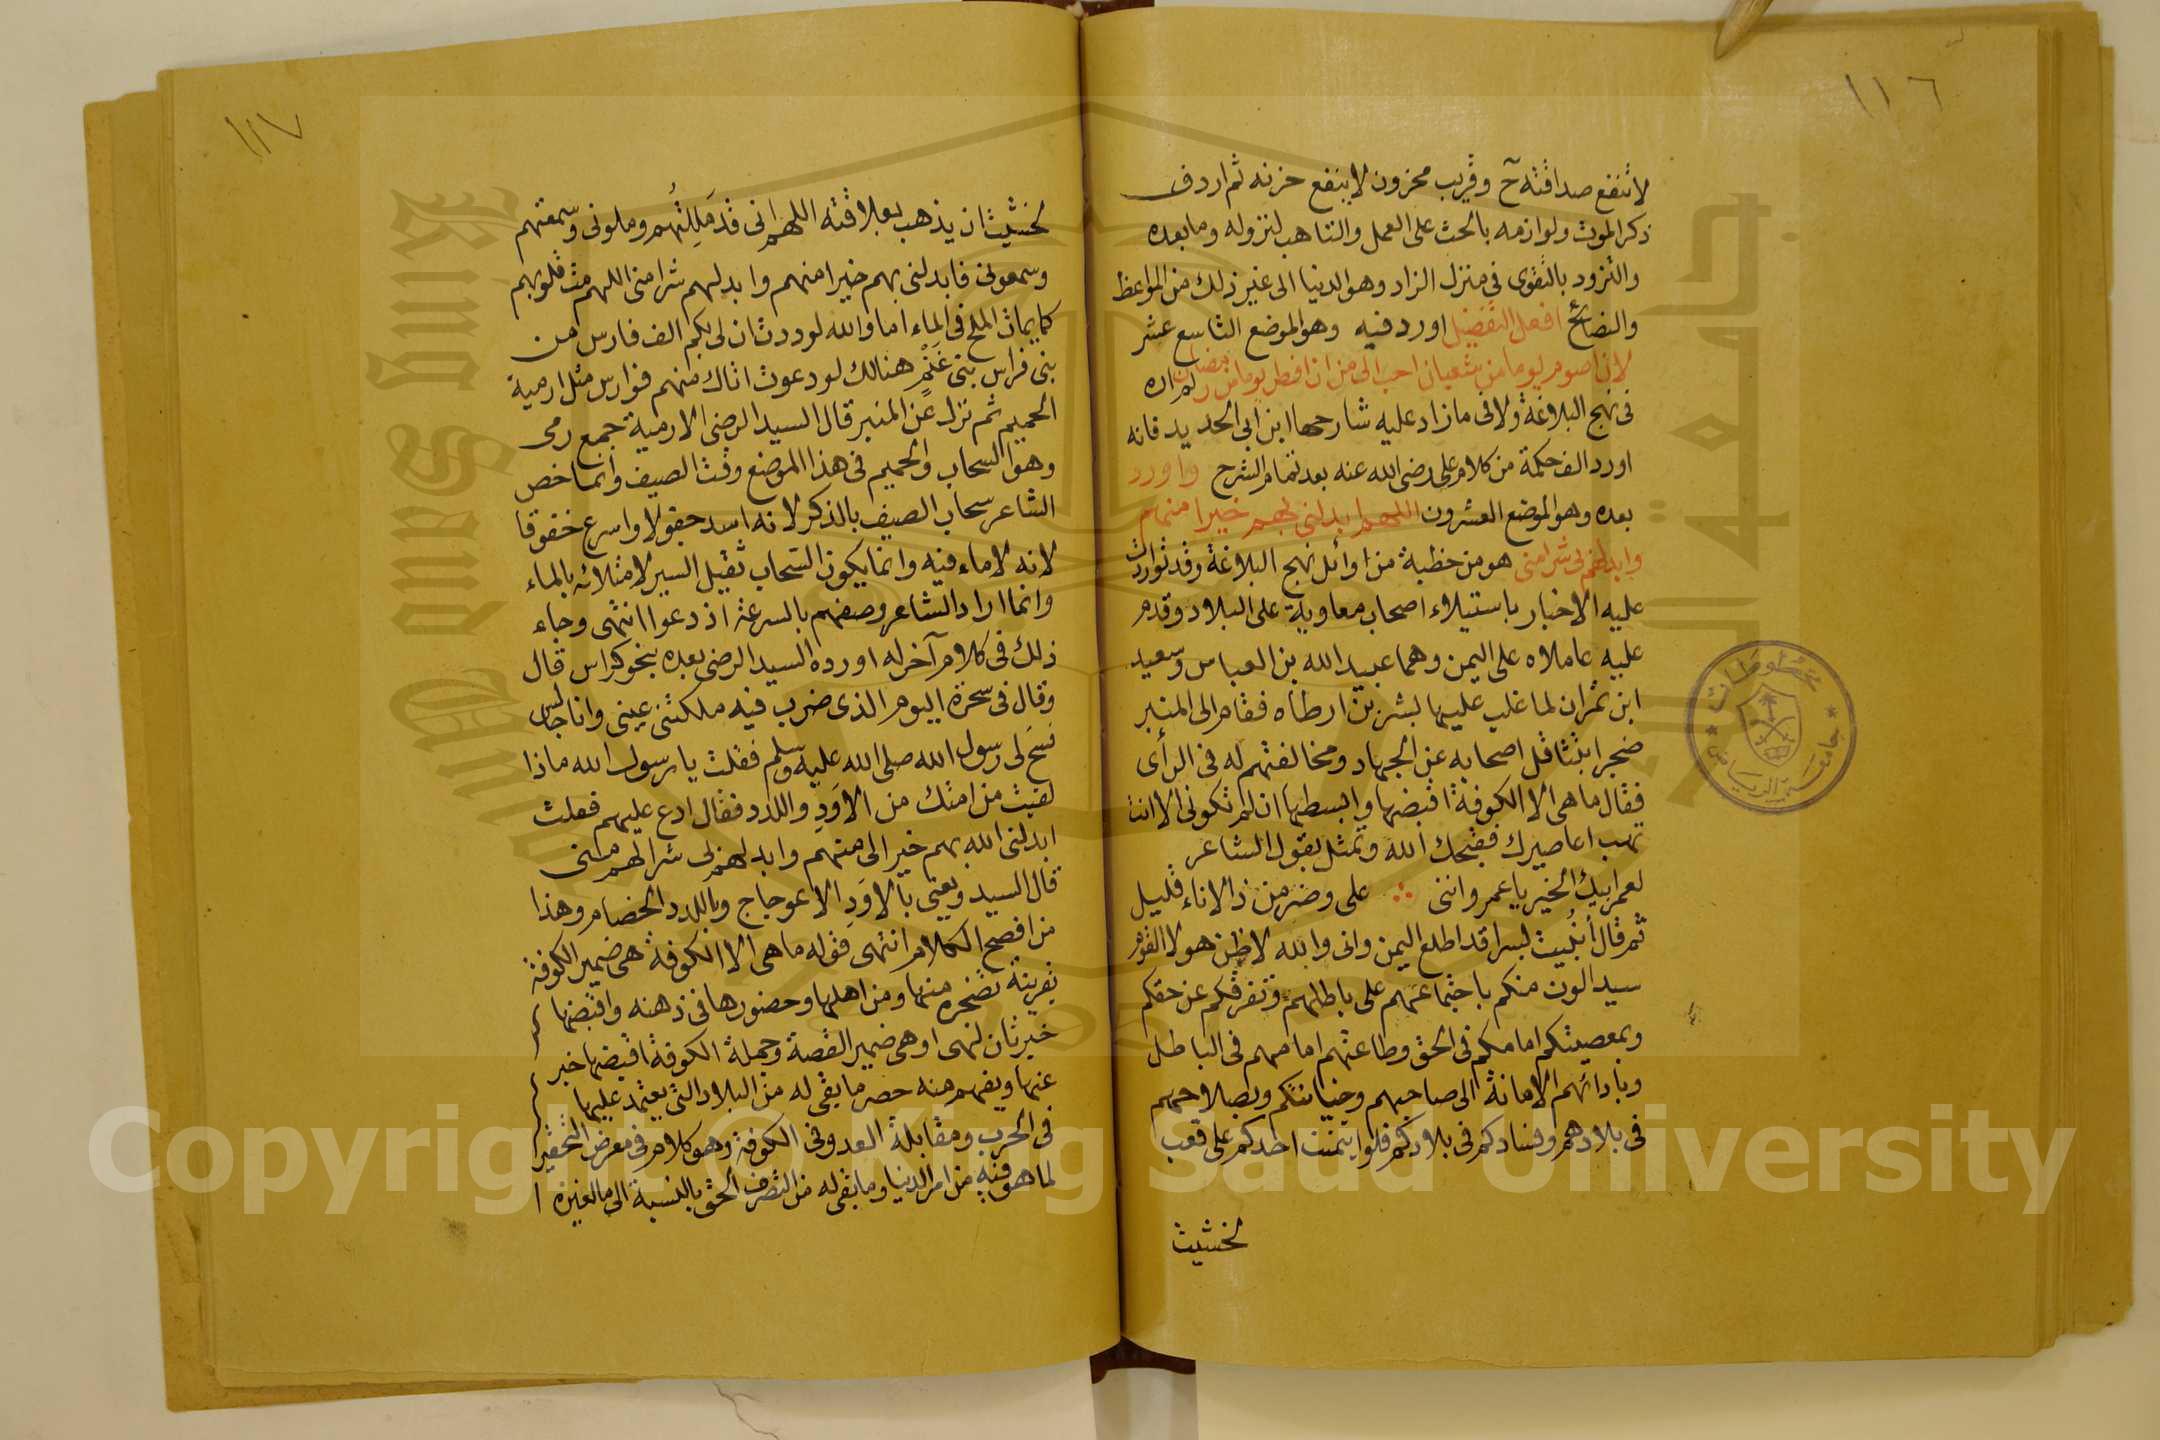 ١١٦
لا تنفع صداقته ح وقريب محزون لا ينفع حزنه ثم اردف
ذكر الموت ولوازمه بالحث على العمل والتاهب لنزوله وما بعده
والتزود بالتقوى في منزل الزاد وهو الدنيا الى غير ذلك من المواعظ
والنصائح افعل التفضيل اورد فيه وهو الموضع التاسع عشر
لان اصوم يوما من شعبان احب الى من ان افطر يوما من رمضان لم اره
في نهج البلاغة ولا في ما زاد عليه شارحها ابن ابي الحديد فانه
اورد الف حكمة من كلام علي رضي الله عنه بعد تمام الشرح واورد
بعده وهو الموضع العشرون اللهم ابدلني بهم خيرا منهم
وابدلهم بي شرا مني هو من خطبة من اوائل نهج البلاغة وقد تواردت
عليه الاخبار باستيلاء اصحاب معاوية على البلاد وقدم
عليه عاملاه على اليمن وهما عبيد الله بن العباس وسعيد
ابن نمران لما غلب عليها بشر بن ارطاه فقام الى المنبر
ضجرا بتثاقل اصحابه عن الجهاد ومخالفتهم له في الرأى
فقال ما هي الا الكوفة اقبضها وابسطها ان لم تكوني الا انت
تهب اعاصيرك فقبحك الله وتمثل بقول الشاعر
لعمر ابيك الخير يا عمرو انني ∴ على وضر من ذا الاناء قليل
ثم قال أنبئت بسرا قد اطلع اليمن واني والله لاظن هولا القوم
سيدالون منكم باجتماعهم على باطلهم وتفرقكم عن حقكم
وبمعصيتكم امامكم في الحق وطاعتهم امامهم في الباطل
وبادائهم الامانة الى صاحبهم وخيانتكم وبصلاحهم
في بلادهم وفسادكم في بلادكم فلو ايتمنت احدكم على قعب
لخشيت
١١٧
لخشيت ان يذهب بعلاقته اللهم اني قد مللتهم وملوني وسمعتهم
وسمعوني فابدلني بهم خيرا منهم وابدلهم شرا مني اللهم مث قلوبهم
كما يماث الملح في الماء اما والله لوددت ان لي بكم الف فارس من
بني فراس بني غنم هنالك لو دعوت اتاك منهم فوارس مثل ارمية
الحميم ثم نزل عن المنبر قال السيد الرضي الارمية جمع رمى
وهو السحاب والحميم في هذا الموضع وقت الصيف وانما خص
الشاعر سحاب الصيف بالذكر لانه اسد حقولا واسرع خفوقا
لانه لا ماء فيه وانما يكون السحاب ثقيل السير لامتلائه بالماء
وانما اراد الشاعر وصفهم بالسرعة اذ دعوا انتهى وجاء
ذلك في كلام آخر له اورده السيد الرضي بعده بنحو كراس قال
وقال في سحرة اليوم الذي ضرب فيه ملكتني عيني وانا جالس
نسح لى رسول الله صلى الله عليه وسلم فقلت يا رسول الله ماذا
لقيت من امتك من الاود واللدد فقال ادع عليهم فعلت
ابدلني الله بهم خيرا لى منهم وابدلهم بي شرا لهم مني
قال السيد ويعني بالاود الاعوجاج وباللدد الخصام وهذا
من افصح الكلام انتهى فقوله ما هي الا الكوفة هي ضمير الكوفة
بقرينة تضجره منها ومن اهلها وحضورها في ذهنه واقبضها
خبر ثان لهي او هي ضمير القصة وجملة الكوفة اقبضها خبر
عنها ويفهم منه حصر ما بقي له من البلاد التي يعتمد عليها
في الحرب ومقابلة العدو في الكوفة وهو كلام في معرض التحقير
لما هو فيه من امر الدنيا وما بقي له من التصرف الحق بالنسبة الى ما لغيره
جامعة الرياض
مخطوطات
جامعة الملك سعود
King Saud University
1957
Copyright © King Saud University